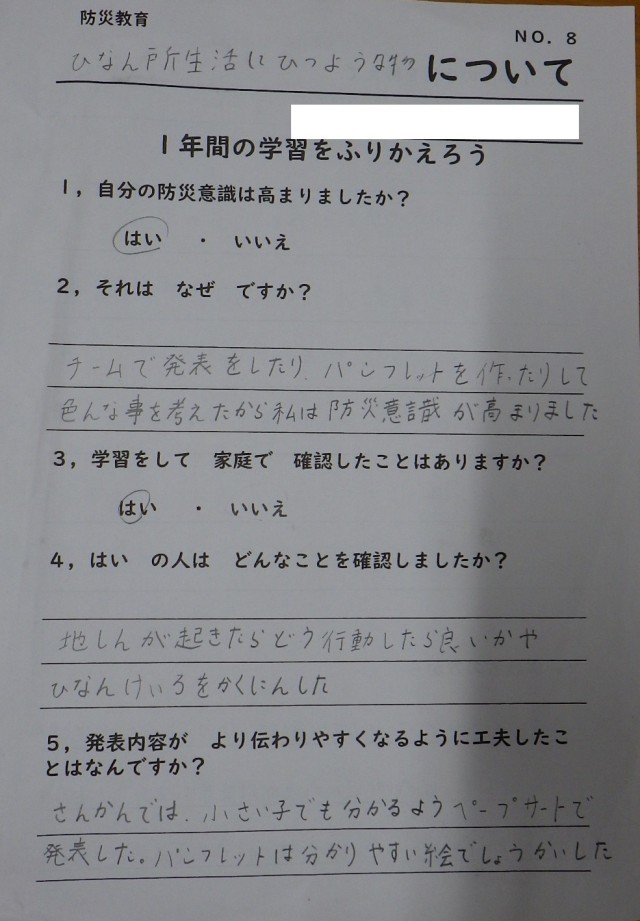 防災教育
NO. 8
ひなん所生活にひつような物 について
1年間の学習をふりかえろう
1，自分の防災意識は高まりましたか？
はい ・ いいえ
2，それは なぜ ですか？
チームで発表をしたり、パンフレットを作ったりして
色んな事を考えたから私は防災意識が高まりました
3，学習をして 家庭で 確認したことはありますか？
はい ・ いいえ
4，はい の人は どんなことを確認しましたか？
地しんが起きたらどう行動したら良いかや
ひなんけいろをかくにんした
5，発表内容が より伝わりやすくなるように工夫したこ
とはなんですか？
さんかんでは、小さい子でも分かるようペープサートで
発表した。パンフレットは分かりやすい絵でしょうかいした